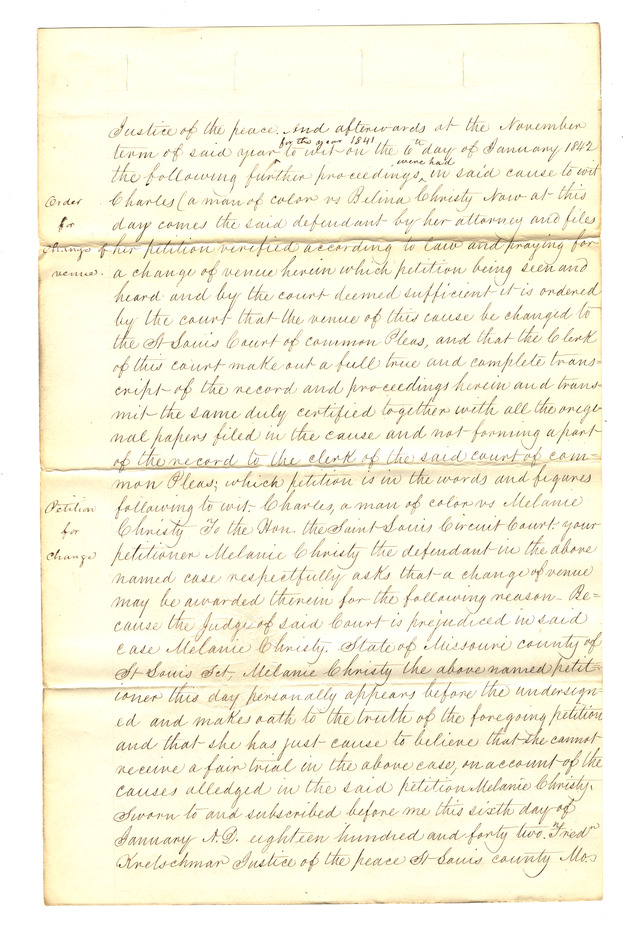 Justice of the peace. And afterwards at the November
for the year 1841
term of said year to wit on the 6th day of January 1842
were had
the following further proceedings, in said cause to wit
Charles (a man of color vs Belina Christy Now at this
day comes the said defendant by her attorney and files
her petition verified according to law and praying for
a change of venue herein which petition being seen and
heard and by the court deemed sufficient it is ordered
by the court that the venue of this cause be changed to
the St Louis Court of common Pleas, and that the Clerk
of this court make out a full true and complete trans=
cript of the record and proceedings herein and trans=
mit the same duly certified together with all the orege=
nal papers filed in the cause and not forming a part
of the record to the clerk of the said court of com=
mon Pleas; which petition is in the words and figures
following to wit. Charles, a man of color vs Melanie
Christy To the Hon. the Saint Louis Circuit Court. your
petitioner Melanie Christy the defendant in the above
named case respectfully asks that a change of venue
may be awarded therein for the following reason - Be=
cause the Judge of said Court is prejudiced in said
case Melanie Christy. State of Missouri county of
St Louis Sct, Melanie Christy the above named petit-
ioner this day personally appears before the undersign-
ed and makes oath to the truth of the foregoing petition
and that she has just cause to believe that she cannot
receive a fair trial in the above case, on account of the
causes alledged in the said petition Melanie Christy.
Sworn to and subscribed before me this sixth day of
January A.D. eighteen hundred and forty two. Fredr
Kretschmar Justice of the peace St Louis county Mo
Order
for
change of
venue.
Petition
for
Change